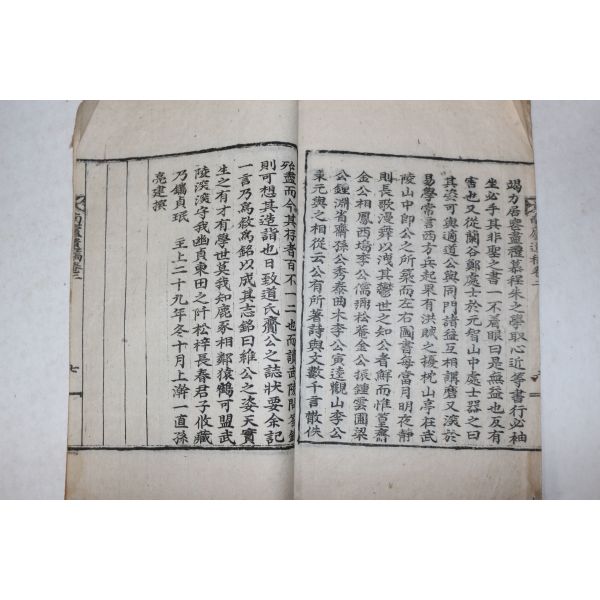 竭力居喪盡禮慕程朱之學取心近等書行必袖
坐必手其非聖之書一不着眼曰是無益也反有
害也又從蘭谷鄭處士於元智山中處士器之曰
其姿可與適道公與同門諸益互相講磨又深於
易學常言西方兵起果有洪賊之擾枕山亭在武
陵山中卽公之所築而左右圖書每當月明夜靜
則長歌漫舞以洩其鬱世之知公者鮮而惟篁齋
金公相鳳西塢李公儒 松菴金公振鍾雲圃梁
公錘淵省齋孫公秀泰曲木李公寅逵觀山李公
秉元與之相從云公有所著詩與文數千言散佚
殆盡而今其存者百不一二也而讀武陵問答
則可想其造詣也日致道氏齎公之誌狀要余記
一言乃高敍爲銘以成其志銘曰維公之姿天實
生之有才有學世莫我知鹿豕相鄰猿鶴可盟武
陵深深于我幽貞東田之阡松梓長春君子攸藏
乃鐫貞珉 至上二十九年冬十月上澣一直孫
亮建撰
卷二
七